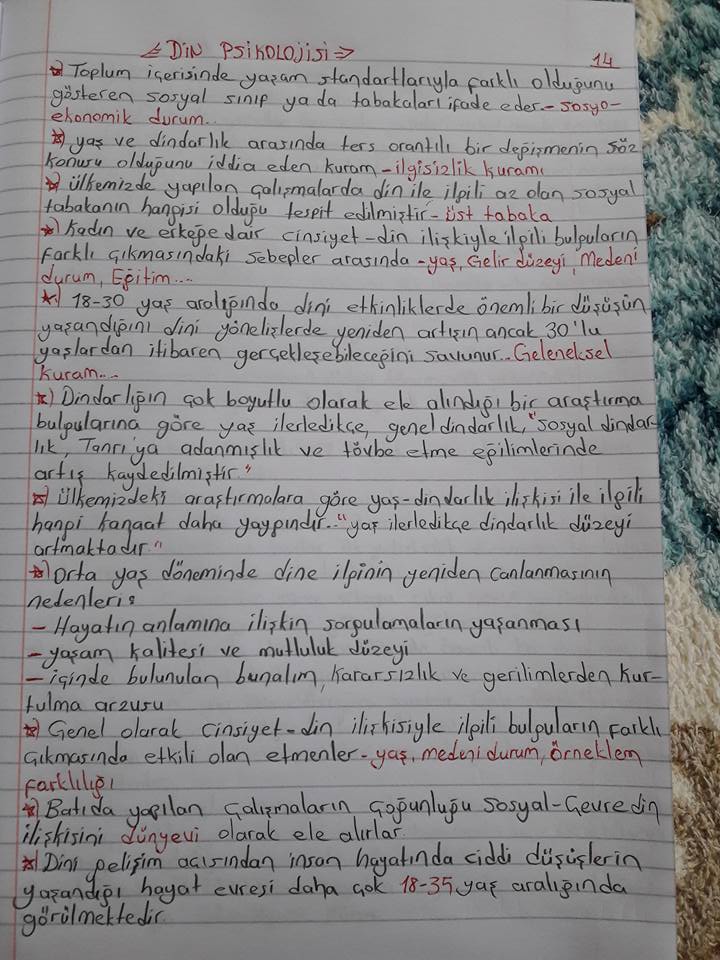 ⇐ DİN PSİKOLOJİSİ ⇒ 14
*) Toplum içerisinde yaşam standartlarıyla farklı olduğunu
gösteren sosyal sınıf ya da tabakaları ifade eder - sosyo-
ekonomik durum..
*) yaş ve dindarlık arasında ters orantılı bir değişmenin söz
konusu olduğunu iddia eden kuram - ilgisizlik kuramı
*) ülkemizde yapılan çalışmalarda din ile ilgili az olan sosyal
tabakanın hangisi olduğu tespit edilmiştir - üst tabaka
*) Kadın ve erkeğe dair cinsiyet-din ilişkiyle ilgili bulguların
farklı çıkmasındaki sebepler arasında - yaş, Gelir düzeyi, Medeni
durum, Eğitim...
*) 18-30 yaş aralığında dini etkinliklerde önemli bir düşüşün
yaşandığını dini yönelişlerde yeniden artışın ancak 30'lu
yaşlardan itibaren gerçekleşebileceğini savunur.. Geleneksel
Kuram...
*) Dindarlığın çok boyutlu olarak ele alındığı bir araştırma
bulgularına göre yaş ilerledikçe, genel dindarlık, "sosyal dindar-
lık, Tanrı'ya adanmışlık ve tövbe etme eğilimlerinde
artış kaydedilmiştir"
*) ülkemizdeki araştırmalara göre yaş-dindarlık ilişkisi ile ilgili
hangi kanaat daha yaygındır.. "yaş ilerledikçe dindarlık düzeyi
artmaktadır"
*) Orta yaş döneminde dine ilginin yeniden canlanmasının
nedenleri:
- Hayatın anlamına ilişkin sorgulamaların yaşanması
- yaşam kalitesi ve mutluluk düzeyi
- içinde bulunulan bunalım, kararsızlık ve gerilimlerden kur-
tulma arzusu
*) Genel olarak cinsiyet-din ilişkisiyle ilgili bulguların farklı
çıkmasında etkili olan etmenler - yaş, medeni durum, örneklem
farklılığı
*) Batıda yapılan çalışmaların çoğunluğu sosyal-Çevre din
ilişkisini dünyevi olarak ele alırlar.
*) Dini gelişim açısından insan hayatında ciddi düşüşlerin
yaşandığı hayat evresi daha çok 18-35 yaş aralığında
görülmektedir.